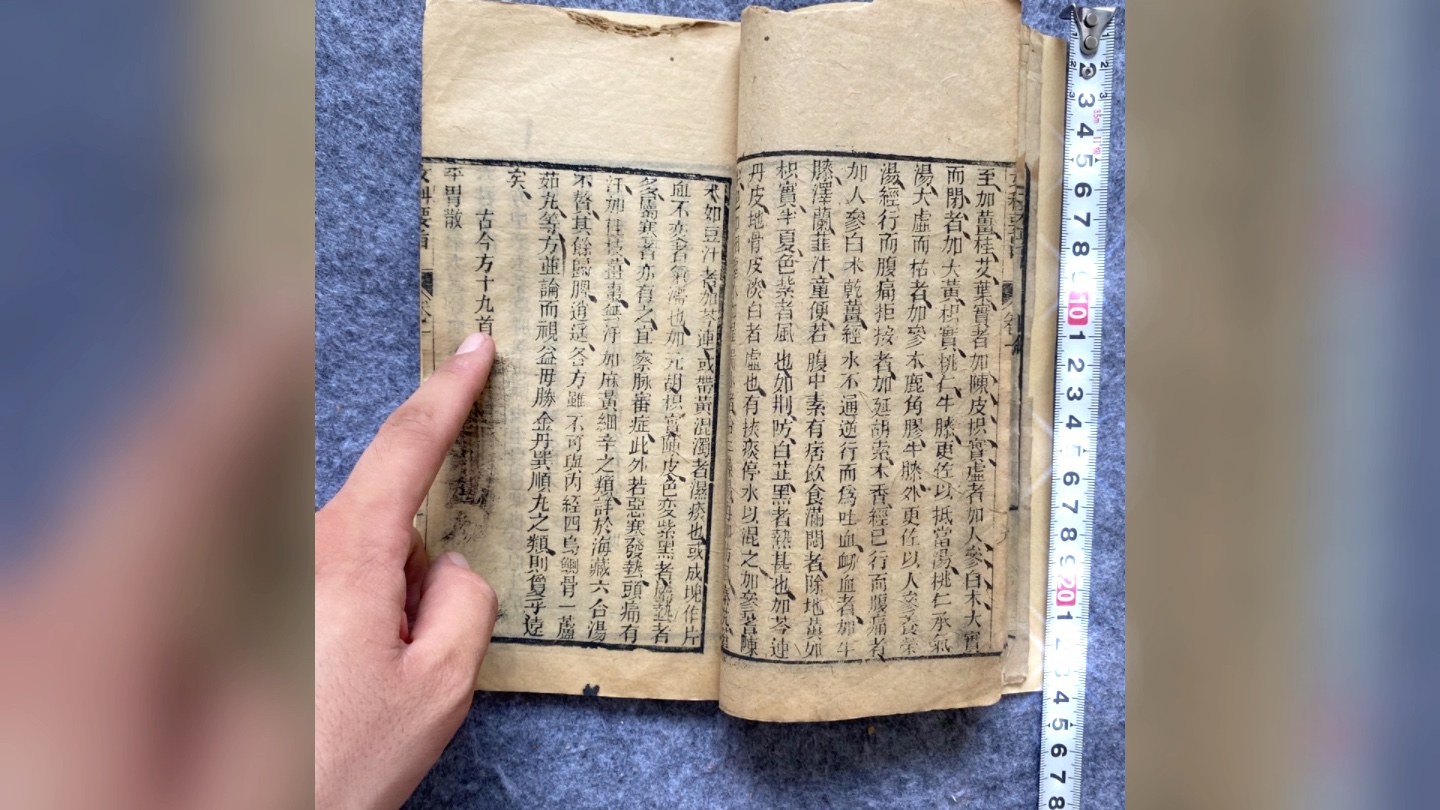 至加薑桂艾葉實者加陳皮枳實虛者加人參白朮大實
而閉者加大黃枳實桃仁牛膝更佐以抵當湯桃仁承氣
湯大虛而枯者加參朮鹿角膠牛膝外更佐以人參養榮
湯經行而腹痛拒按者加延胡索木香經已行而腹痛者
加人參白朮乾薑經水不通逆行而爲吐血衂血者加牛
膝澤蘭韭汁童便若腹中素有痞飲食滿悶者除地黃加
枳實半夏色紫者風也加荆防白芷黑者熱甚也加芩連
丹皮地骨皮淡白者虛也有挾痰停水以混之加參芪陳
水如豆汁者加芩連或帶黃混濁者濕痰也或成塊作片
血不変者氣滯也加元胡枳實陳皮色変紫黑者屬熱者
多屬寒者亦有之宜察脉審症此外若惡寒發熱頭痛有
汗加桂枝薑棗無汗加麻黃細辛之類詳於海藏六合湯
不贅其餘歸脾逍遥各方雖不可與内経四烏鰂骨一藘
茹丸等方並論而視益母勝金丹巽順丸之類則敻乎遠
矣
古今方十九首
平胃散